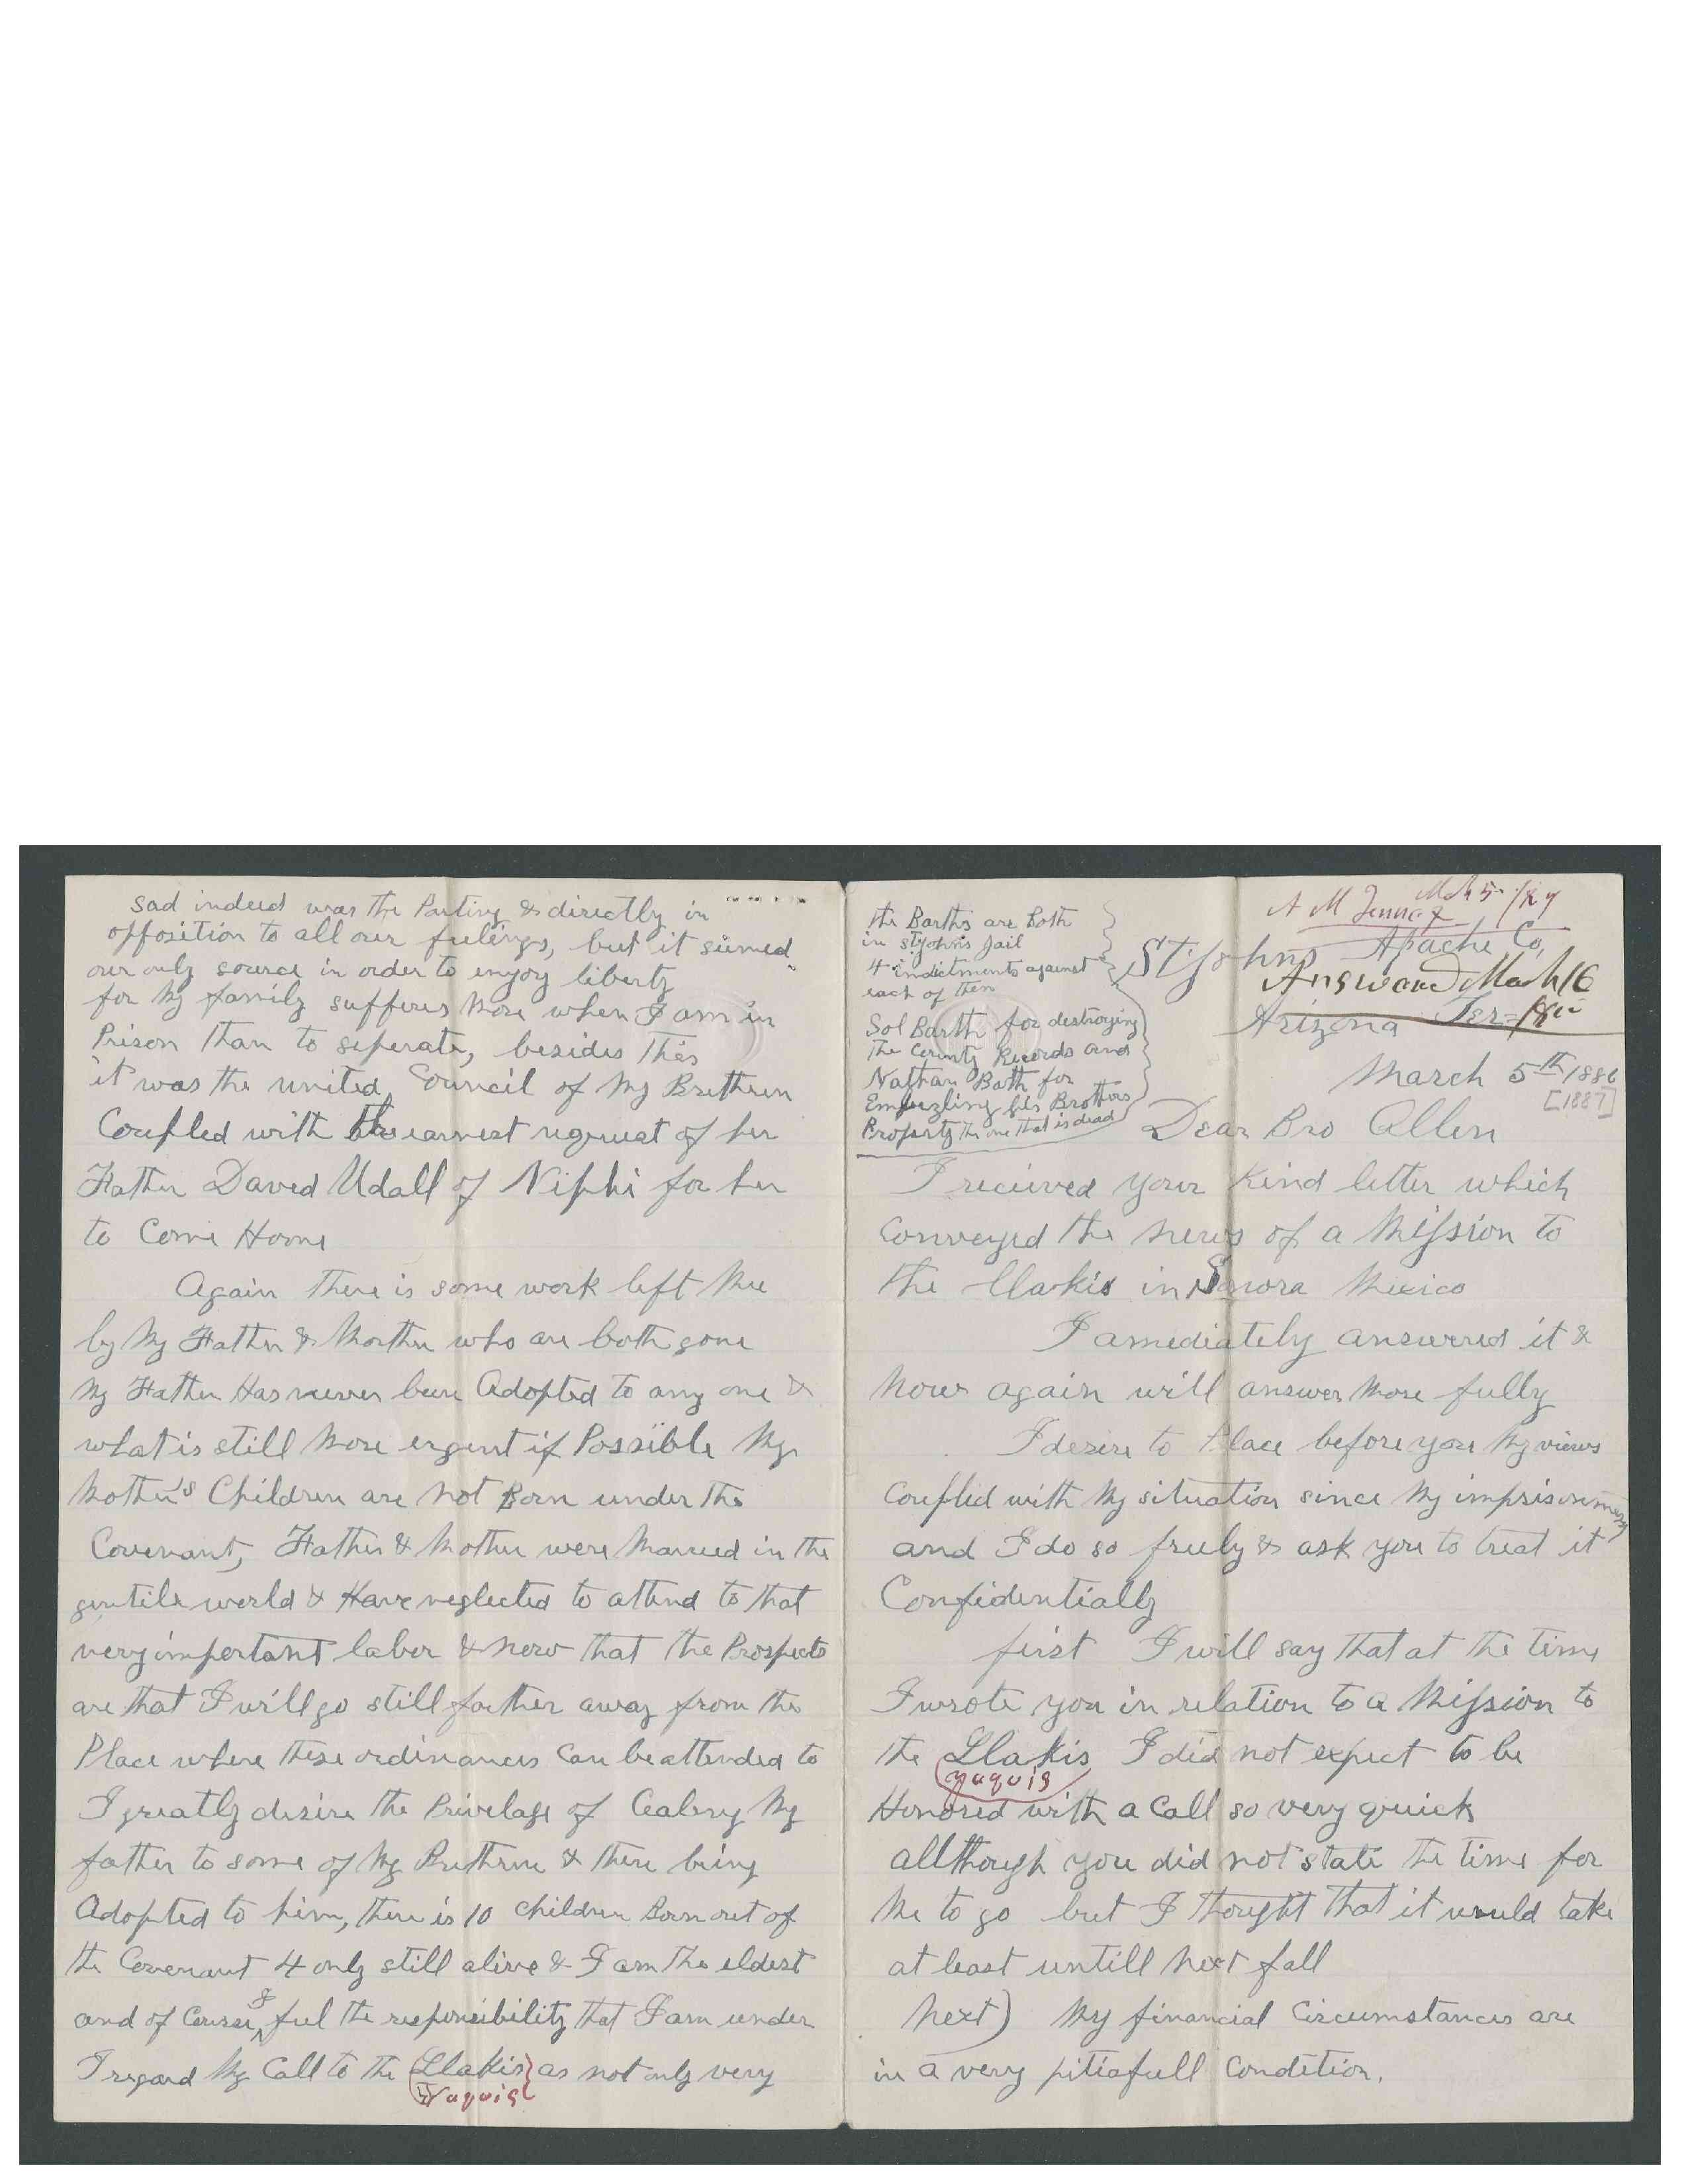 sad indeed was the Parting & directly in
opposition to all our feelings, but it seemed
our only source in order to enjoy liberty
for My family sufferes More when I am in
Prison than to seperate, besides this
it was the united Council of My Bretheren
Coupled with the earnest request of her
Father David Udall of Niphi for her
to Come Home
Again there is some work left Me
by My Father & Mother who are both gone
My Father Has never been Adopted to any one &
what is still More ergent if Possible My
Mother's Children are Not Born under the
Covenant, Father & Mother were Married in the
gentile world & Have neglected to attend to that
very important labor & now that the Prospects
are that I will go still farther away from the
Place where these ordinances Can be attended to
I greatly desire the Privelage of Cealing My
father to some of My Brethren & there being
Adopted to him, there is 10 Children Born out of
the Covenant 4 only still alive & I am the eldest
and of Course I feel the responsibility that I am under
I regard My Call to the Llakis as not only very
Yaquis
the Barths are Both
in St Johns Jail
4 indictments against
each of them
Sol Barth for destroying
the County Records and
Nathan Barth for
Embezling his Brothers
Property the one that is dead
A M Tenney Mch 5 /87
St Johns Apache Co,
Answered Mach 16
Arizona Ter
March 5th 1886
[1887]
Dear Bro Allen
I recieved your Kind letter which
Conveyed the news of a Mission to
the Llakis in Sonora Mexico
I amediately answered it &
Now again will answer More fully
I desire to Place before you My views
Coupled with My situation since My imprisonment
and I do so freely & ask you to treat it
Confidentially
first I will say that at the time
I wrote you in relation to a Mission to
the Llakis I did not expect to be
Yaquis
Honored with a Call so very quick
allthough you did not state the time for
Me to go but I thought that it would take
at least untill Next fall
Next) My financial Circumstances are
in a very pitiafull Condition.